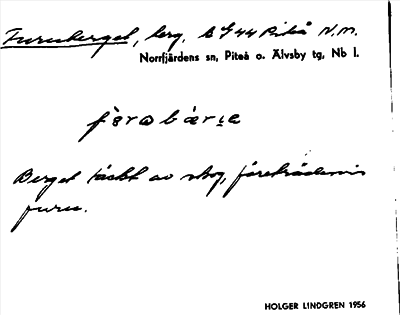 Furuberget, berg, b 44 Piteå N.M.
Norrfjärdens sn, Piteå o. Älvsby tg, Nb l.
Berget täckt av skog, företrädesvis
furu.
HOLGER LINDGREN 1956